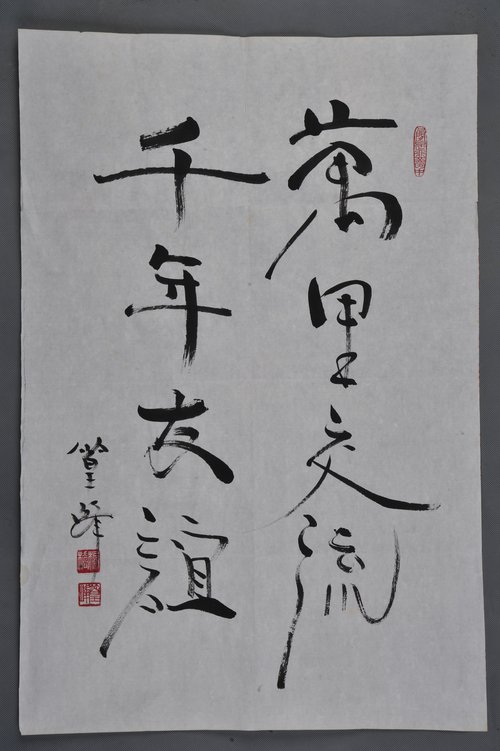 萬里交流
千年友誼